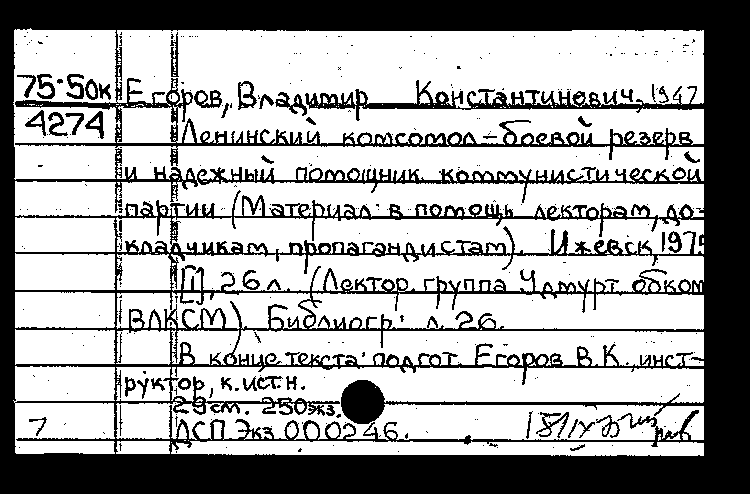 75-50к Егоров, Владимир Константинович, 1947
4274 Ленинский комсомол-боевой резерв
и надежный помощник коммунистической
партии (Материал в помощь лекторам, до-
кладчикам, пропагандистам). Ижевск, 1975
[1], 26 л. (Лектор. группа Удмурт. обком
ВЛКСМ). Библиогр.: л. 26.
В конце текста: подгот. Егоров В.К., инст-
руктор, к.ист.н.
29 см. 250 экз.
7 ДСП Экз. 000246.